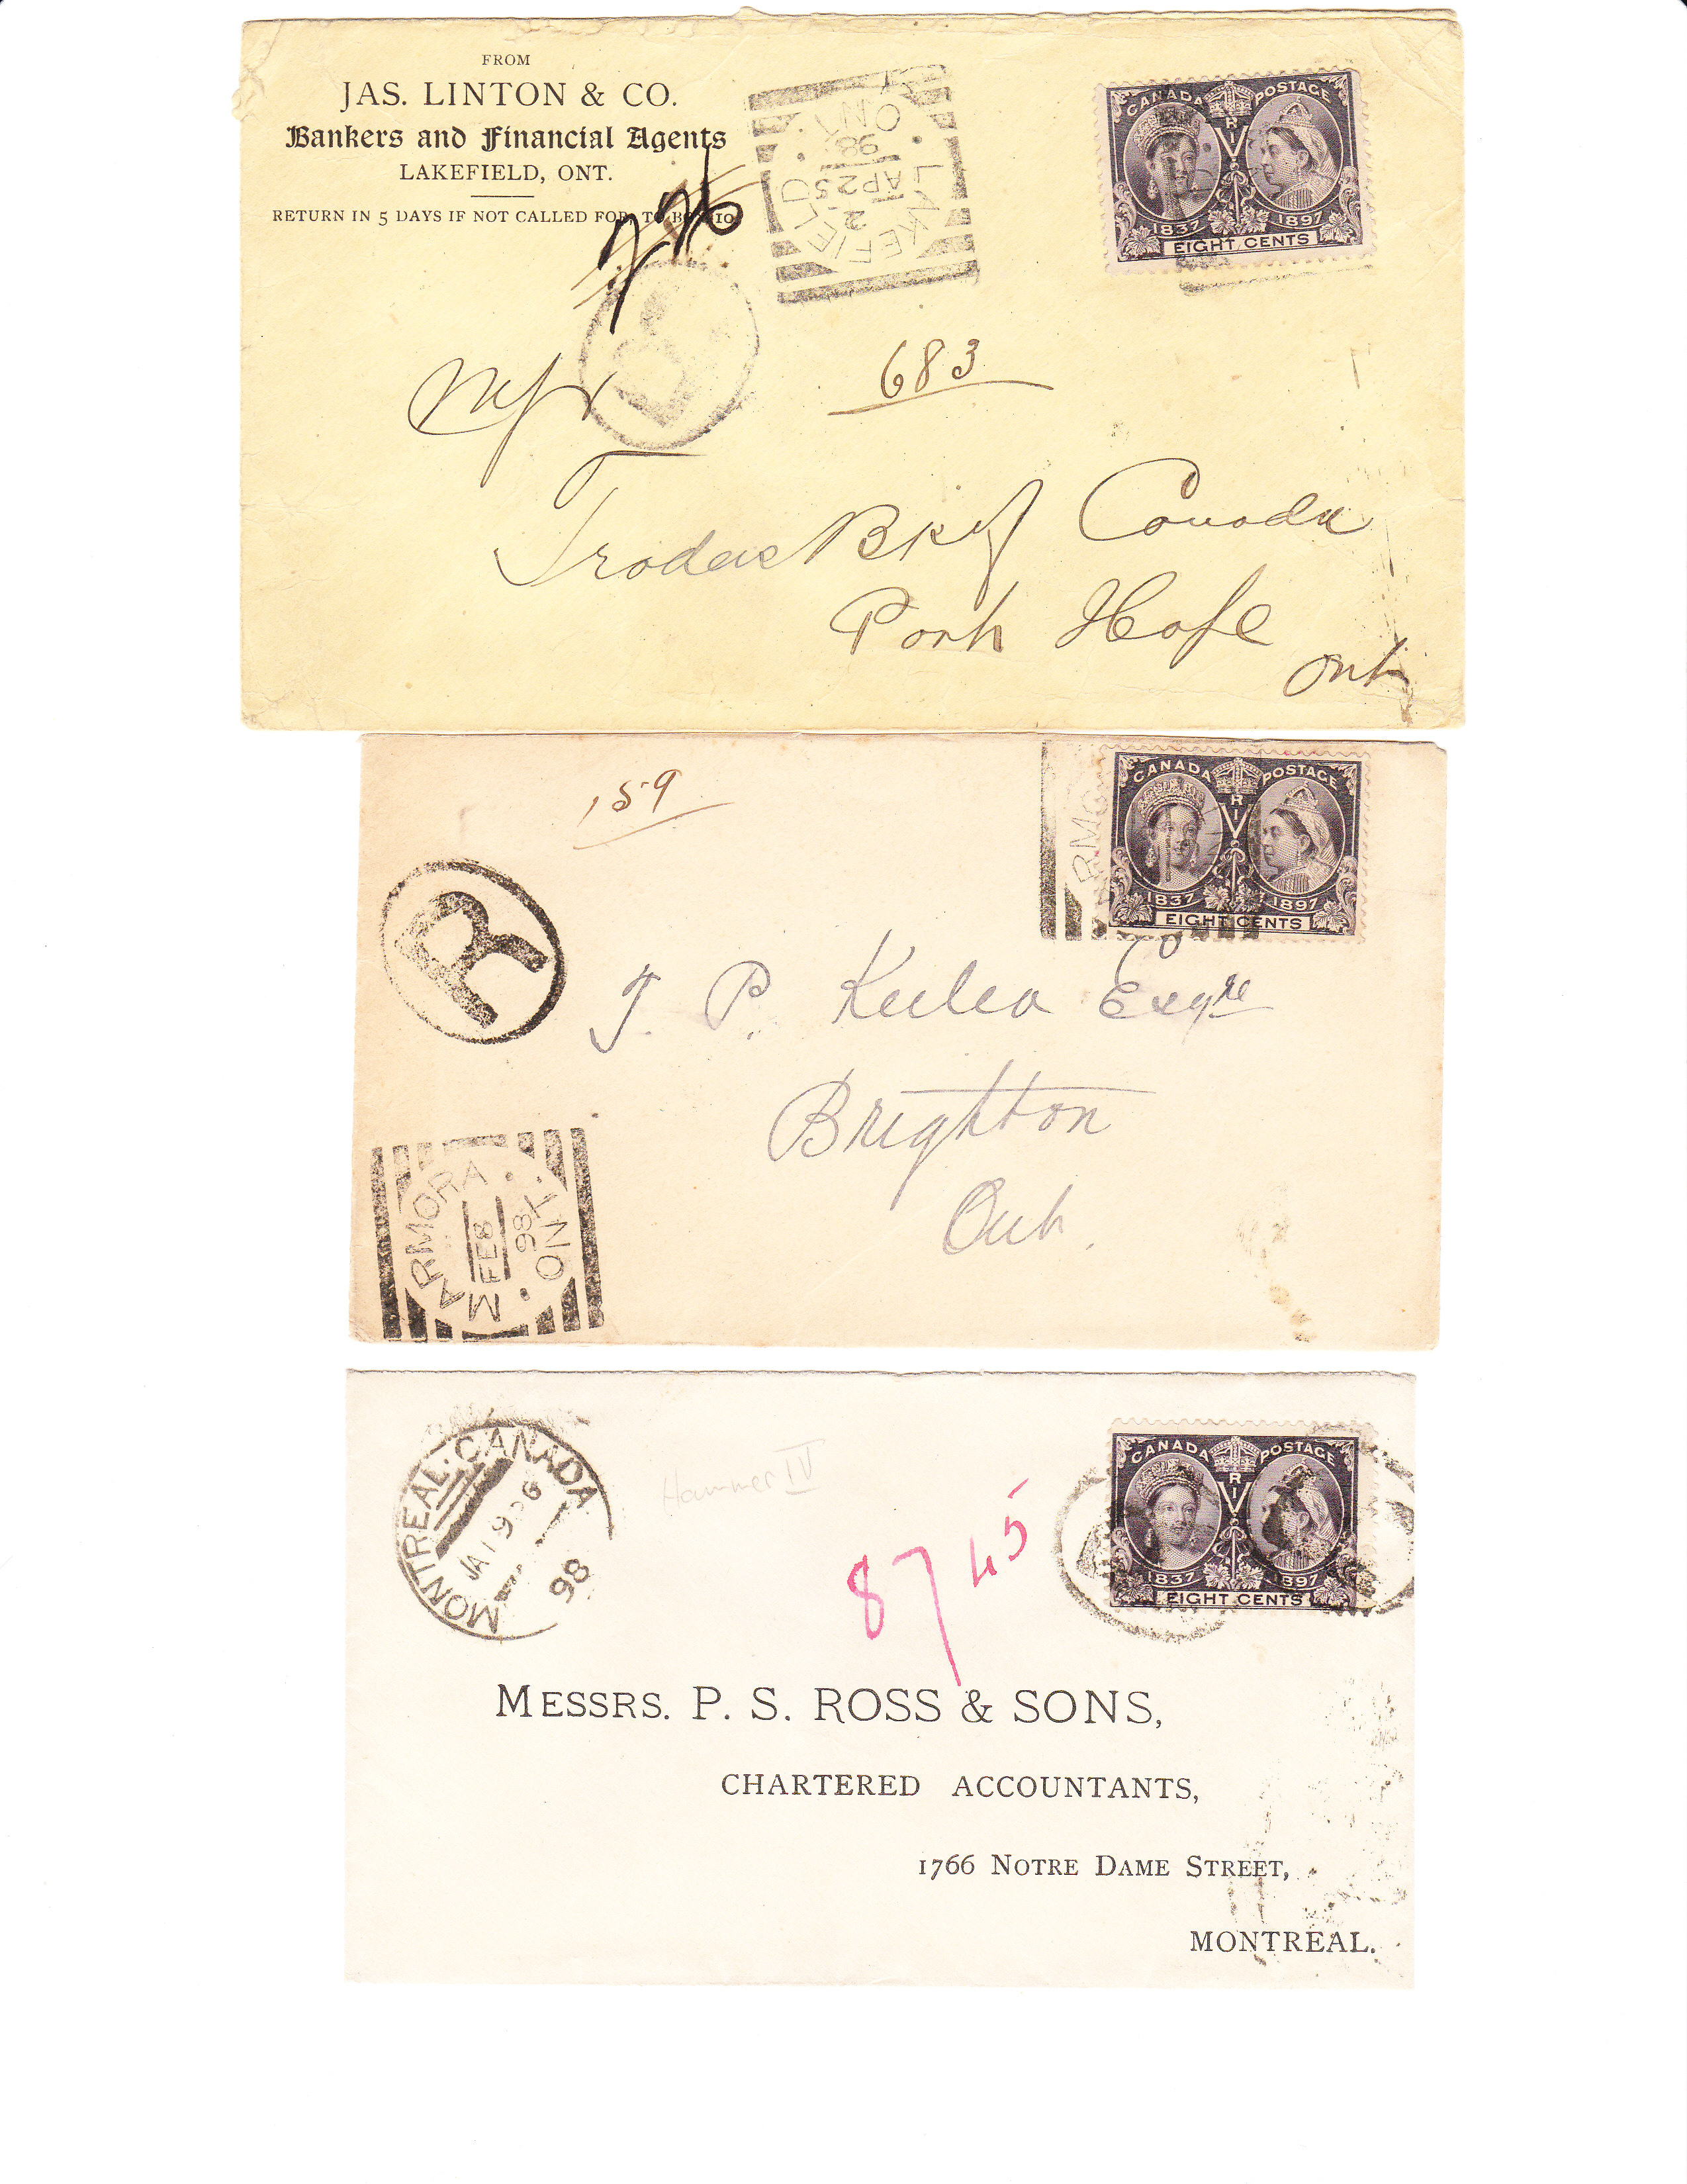 FROM
JAS. LINTON & CO.
Bankers and Financial Agents
LAKEFIELD, ONT.
RETURN IN 5 DAYS IF NOT CALLED FOR, TO BOX 10
776
LAKEFIELD
2
AP 25
98
ONT
CANADA POSTAGE
V R I
1837 1897
EIGHT CENTS
R
683
Mgr
Traders Bk of Canada
Port Hope
Ont
159
RMO
CANADA POSTAGE
V R I
1837 1897
EIGHT CENTS
R
T. P. Esqre
Brighton
Ont.
MARMORA
FE 8
98
ONT
MONTREAL. CANADA
JA 19
98
Hammer IV
8745
CANADA POSTAGE
V R I
1837 1897
EIGHT CENTS
MESSRS. P. S. ROSS & SONS,
CHARTERED ACCOUNTANTS,
1766 NOTRE DAME STREET,
MONTREAL.